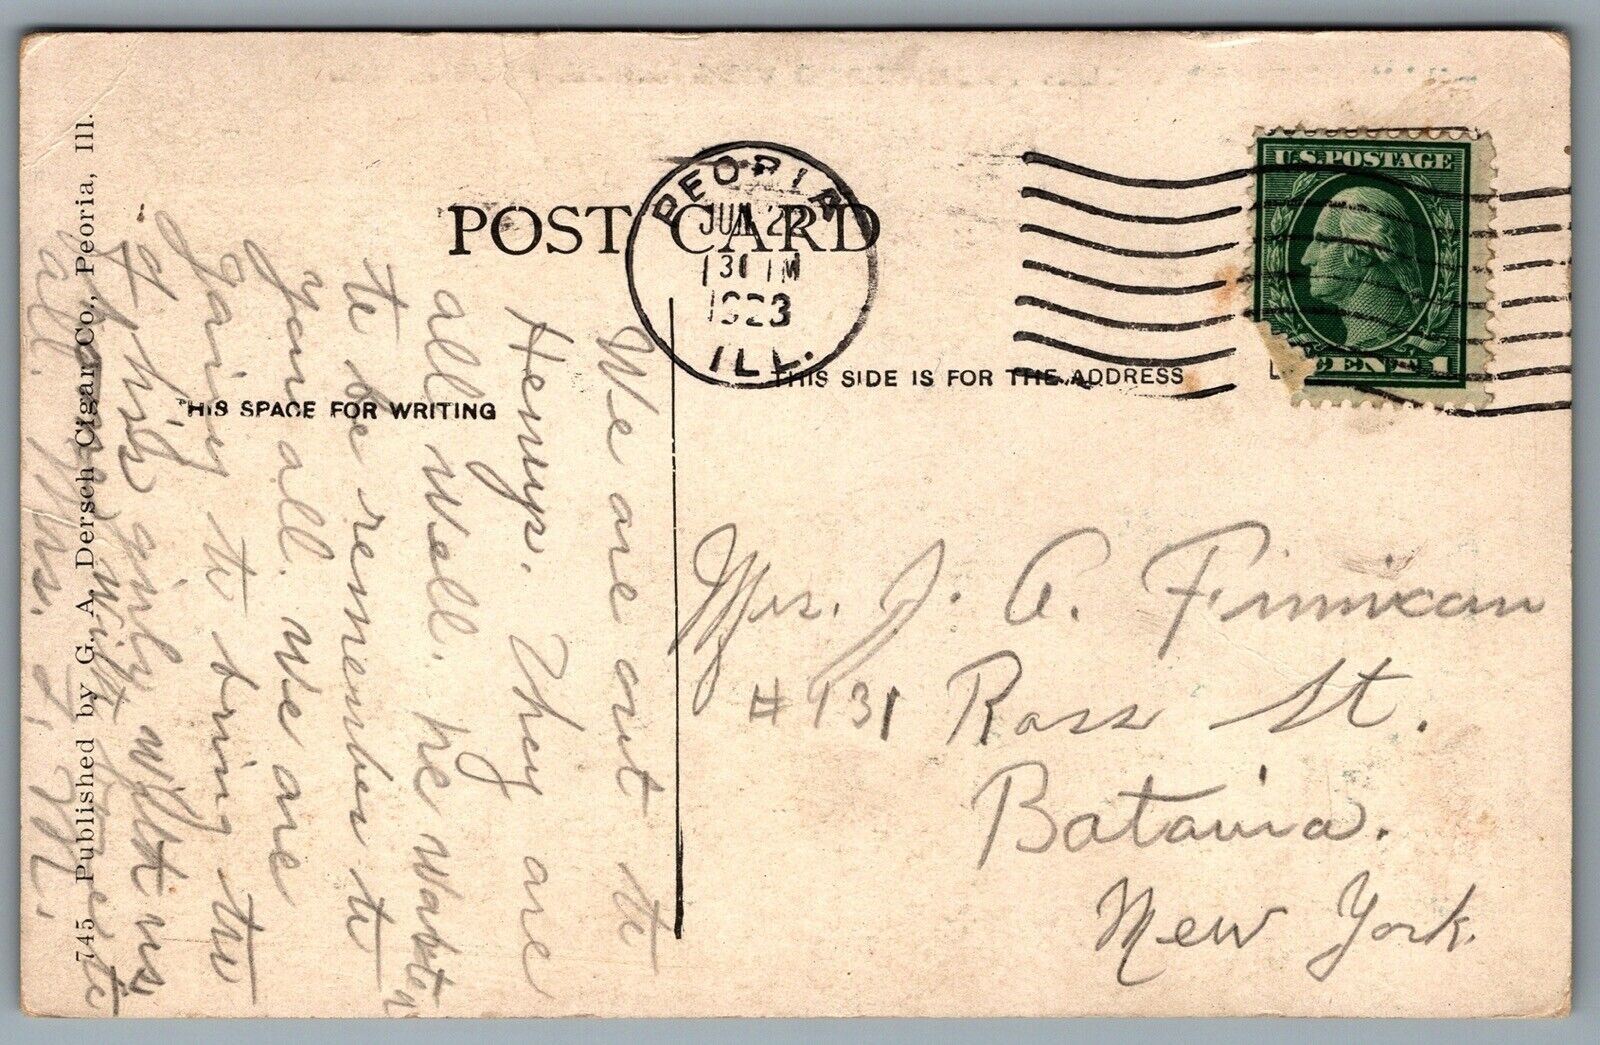 POST CARD
PEORIA
JUN 22
130 PM
1923
ILL.
U.S. POSTAGE
1 CENT 1
THIS SPACE FOR WRITING
THIS SIDE IS FOR THE ADDRESS
745 Published by G. A. Dersch Cigar Co., Peoria, Ill.
We are out to
Henrys. They are
all well. He wants
to be remember to
you all. We are
going to bring the
of his girly with us
all. Mrs. J. M.
Mrs. J. A. Finnican
#131 Ross St.
Batavia.
New York.